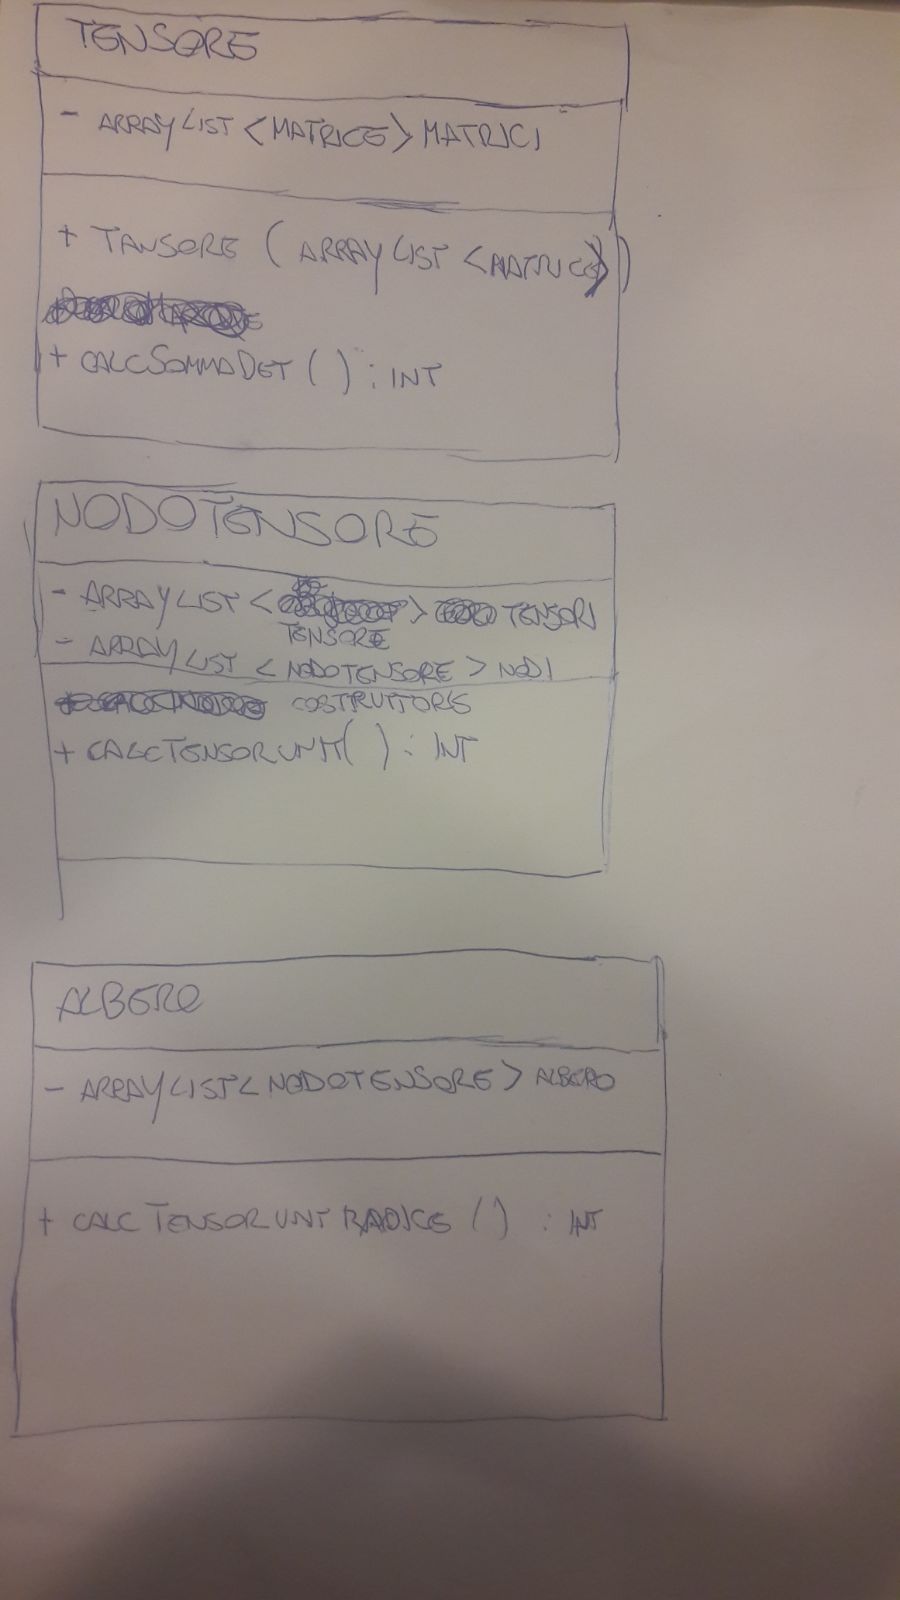 TENSORE
- ARRAYLIST <MATRICE> MATRICI
+ TANSORE (ARRAYLIST <MATRICE>)
+ CALCSOMMADET ( ) : INT
NODOTENSORE
- ARRAYLIST < > TENSORI
TENSORE
- ARRAYLIST < NODOTENSORE > NODI
COSTRUTTORE
+ CALCTENSORUNT( ) : INT
ALBERO
- ARRAYLIST< NODOTENSORE > ALBERO
+ CALCTENSORUNTRADICE ( ) : INT